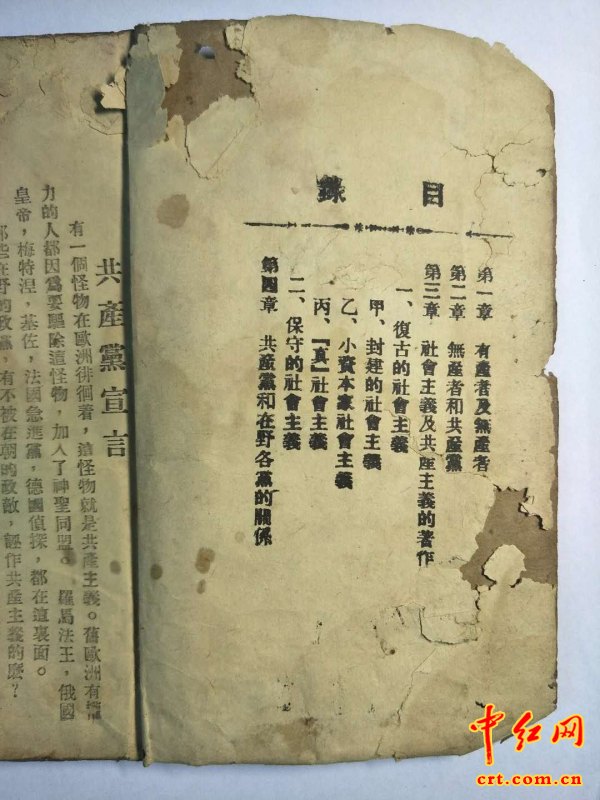 目錄
第一章 有產者及無產者
第二章 無產者和共產黨
第三章 社會主義及共產主義的著作
一、復古的社會主義
甲、封建的社會主義
乙、小資本家社會主義
丙、「真」社會主義
二、保守的社會主義
第四章 共產黨和在野各黨的關係
共產黨宣言
有一個怪物在歐洲徘徊着，這怪物就是共產主義。舊歐洲有權
力的人都因爲要驅除這怪物，加入了神聖同盟。羅馬法王，俄國
皇帝，梅特涅，基佐，法國急進黨，德國偵探，都在這裏面。
那些在野的政黨，有不被在朝的政敵，誣作共產主義的麽？
中红网
crt.com.cn